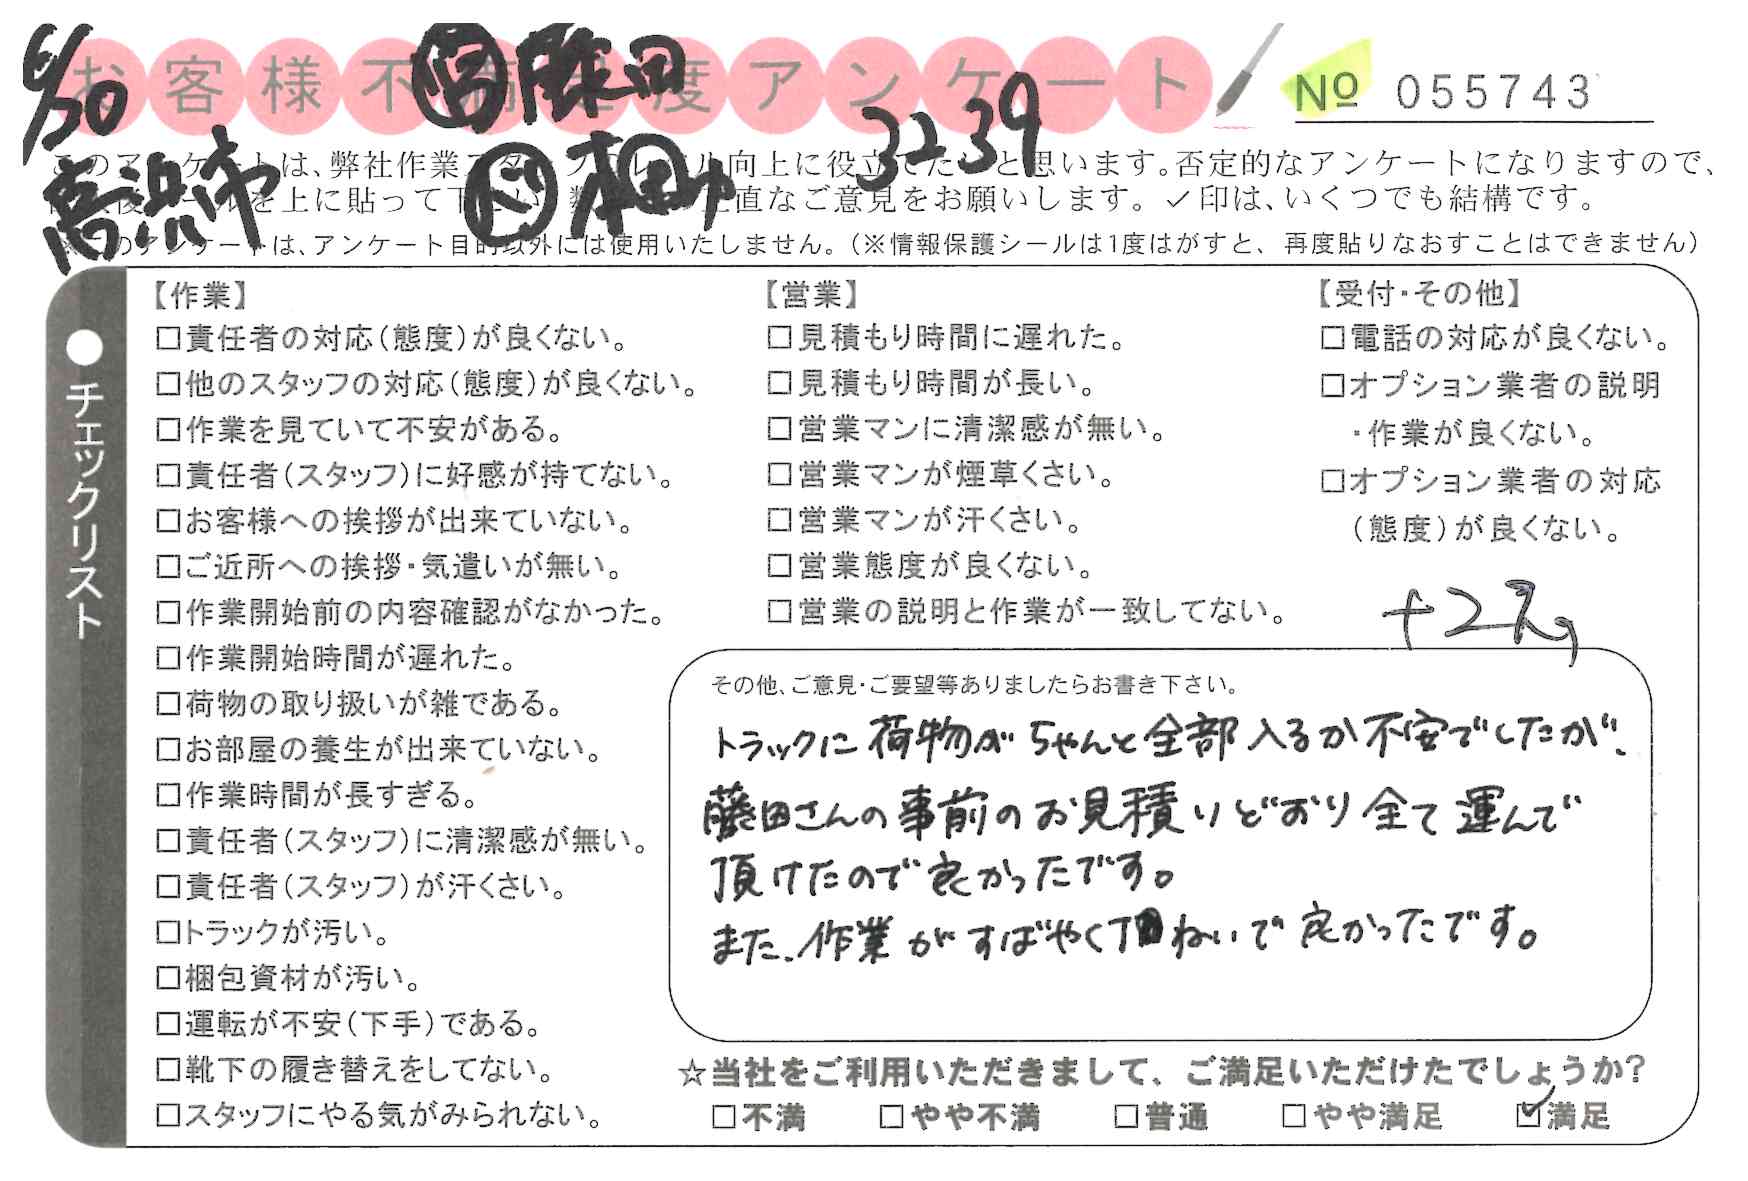 6/30
お客様不満足度アンケート
藤田
No 055743
3239
高浜市
このアンケートは、弊社作業スタッフのレベル向上に役立てたいと思います。否定的なアンケートになりますので、
シールを上に貼って下さい。直なご意見をお願いします。✓印は、いくつでも結構です。
※このアンケートは、アンケート目的以外には使用いたしません。(※情報保護シールは1度はがすと、再度貼りなおすことはできません)
●チェックリスト
【作業】
□責任者の対応(態度)が良くない。
□他のスタッフの対応(態度)が良くない。
□作業を見ていて不安がある。
□責任者(スタッフ)に好感が持てない。
□お客様への挨拶が出来ていない。
□ご近所への挨拶・気遣いが無い。
□作業開始前の内容確認がなかった。
□作業開始時間が遅れた。
□荷物の取り扱いが雑である。
□お部屋の養生が出来ていない。
□作業時間が長すぎる。
□責任者(スタッフ)に清潔感が無い。
□責任者(スタッフ)が汗くさい。
□トラックが汚い。
□梱包資材が汚い。
□運転が不安(下手)である。
□靴下の履き替えをしてない。
□スタッフにやる気がみられない。
【営業】
□見積もり時間に遅れた。
□見積もり時間が長い。
□営業マンに清潔感が無い。
□営業マンが煙草くさい。
□営業マンが汗くさい。
□営業態度が良くない。
□営業の説明と作業が一致してない。
【受付・その他】
□電話の対応が良くない。
□オプション業者の説明
・作業が良くない。
□オプション業者の対応
(態度)が良くない。
その他、ご意見・ご要望等ありましたらお書き下さい。
トラックに荷物がちゃんと全部入るか不安でしたが、
藤田さんの事前のお見積りどおり全て運んで
頂けたので良かったです。
また、作業がすばやくていねいで良かったです。
☆当社をご利用いただきまして、ご満足いただけたでしょうか?
□不満 □やや不満 □普通 □やや満足 ☑満足